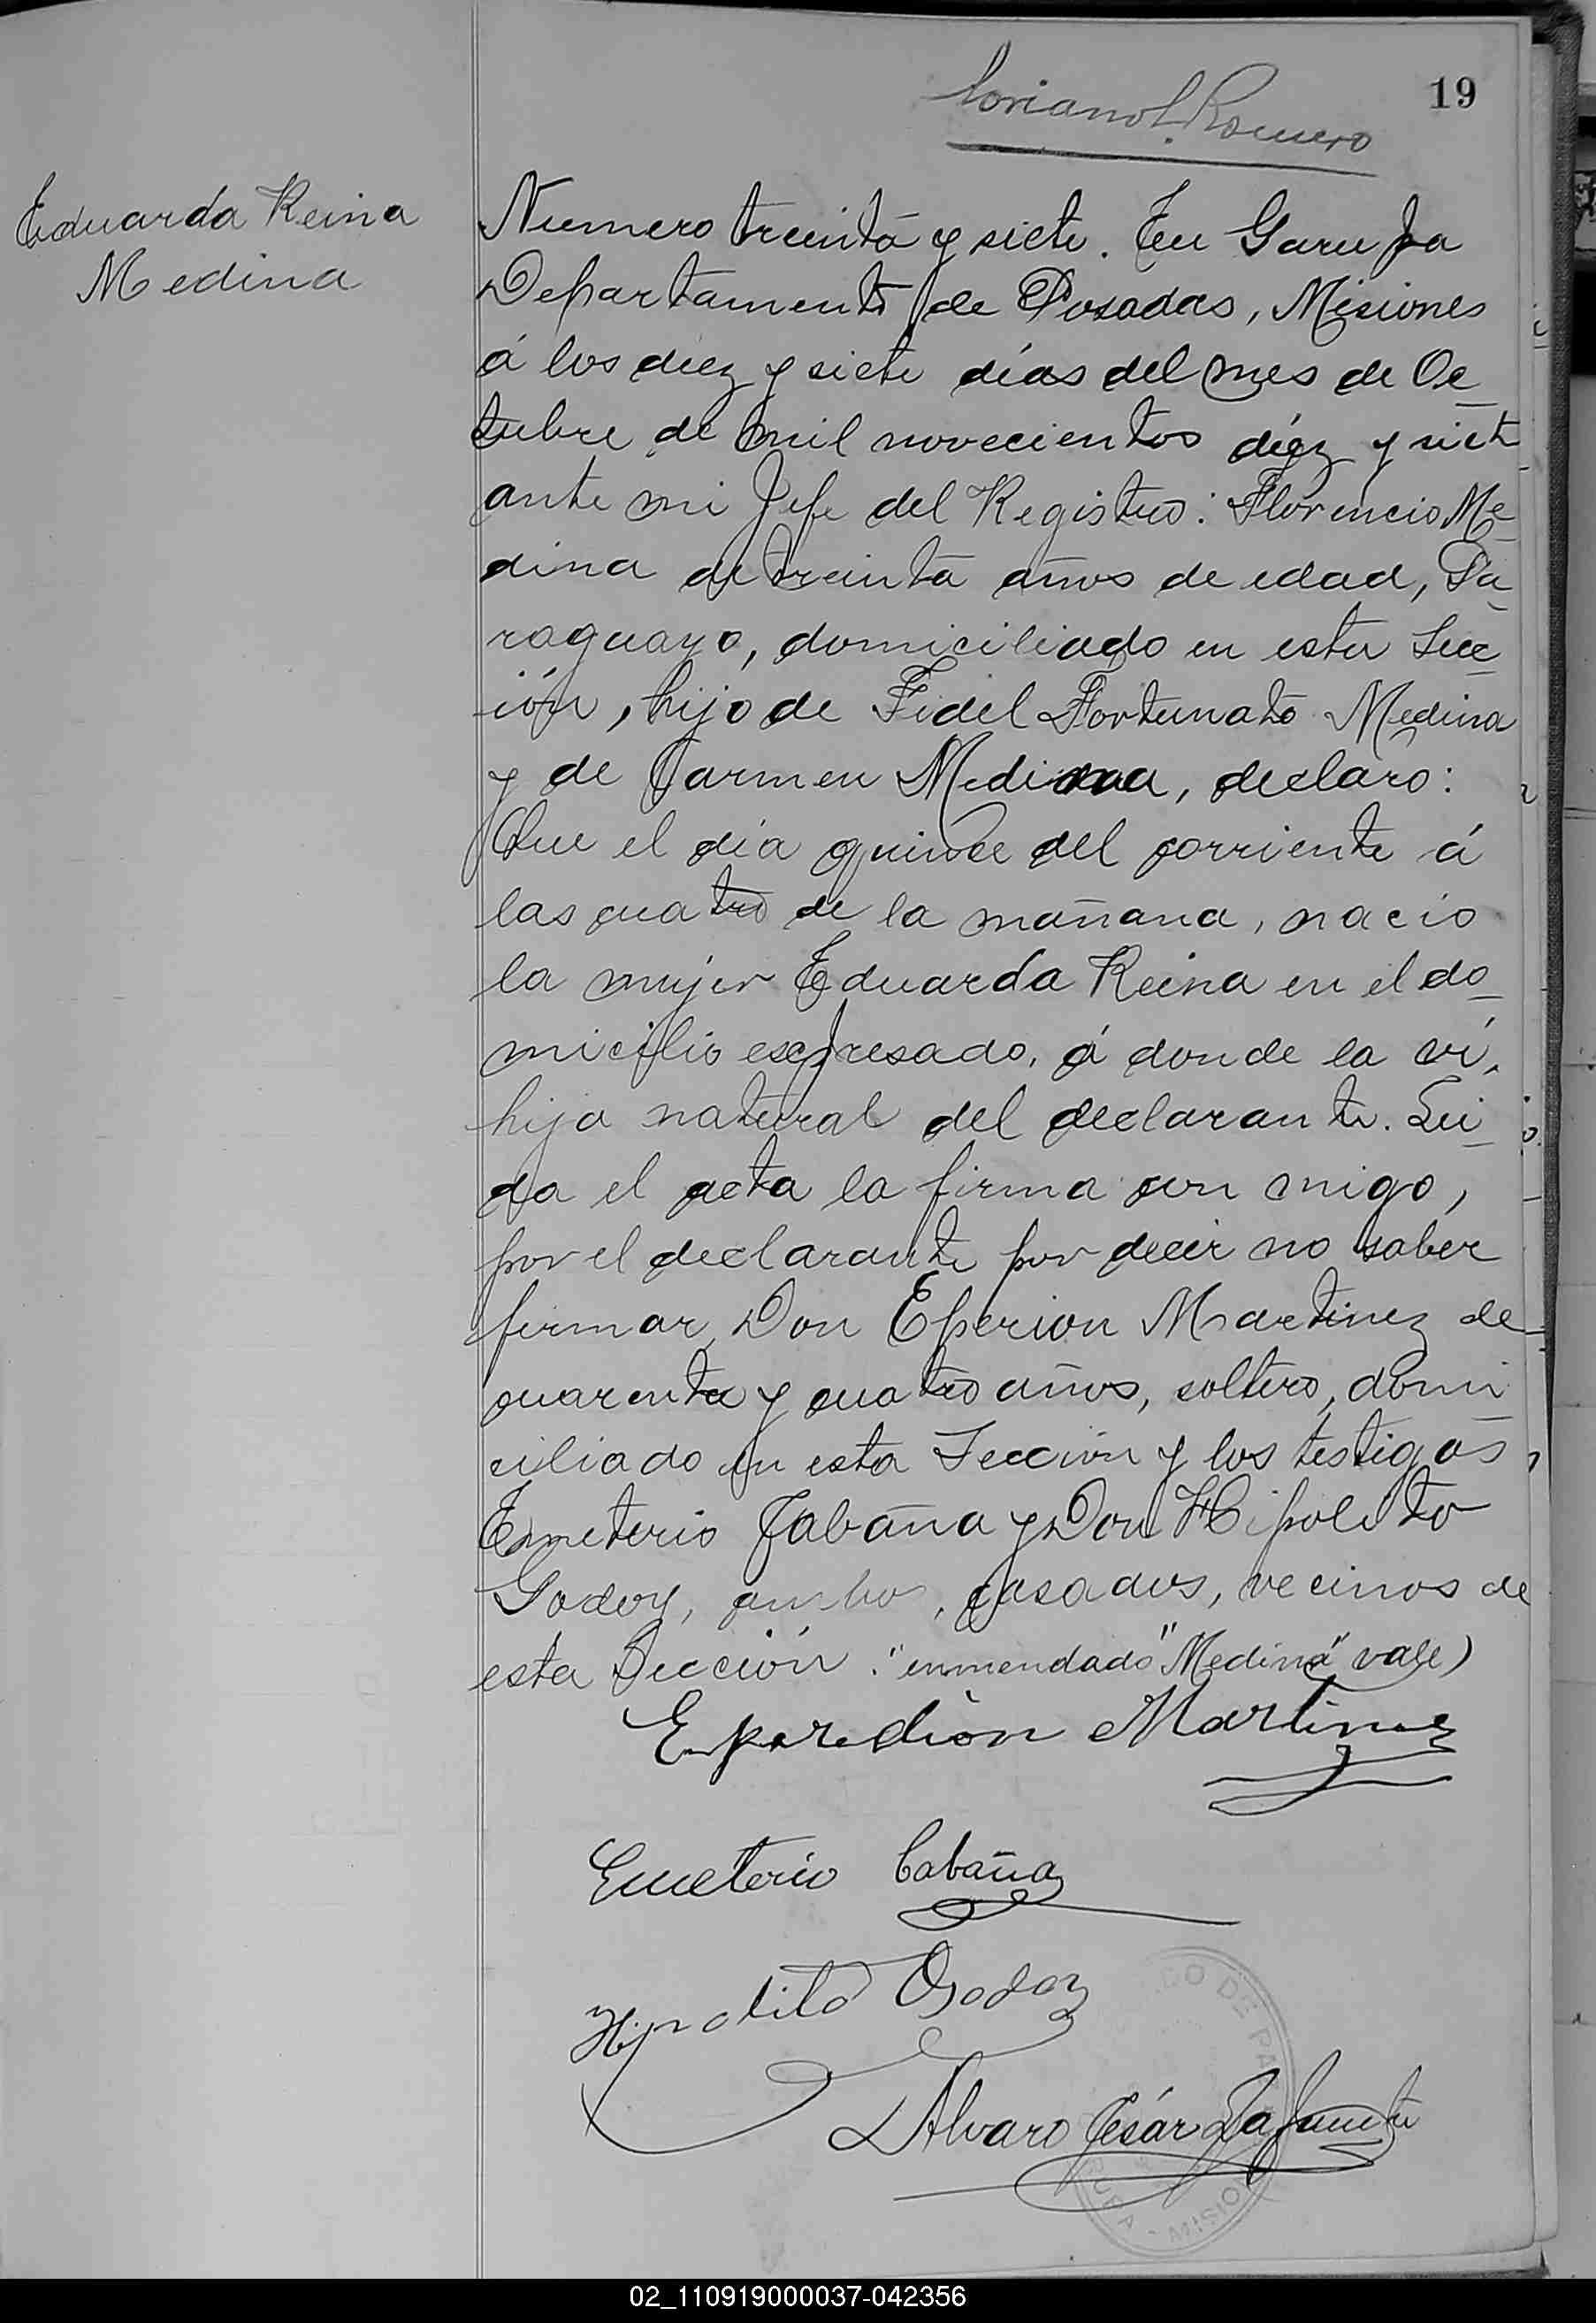 19
Soriano L. Romero
Eduarda Reina
Medina
Numero treinta y siete. En Garupa
Departamento de Posadas, Misiones
á los diez y siete días del mes de Oc_
tubre de mil novecientos diéz y siete
ante mi Jefe del Registro: Florencio Me_
dina de treinta años de edad, Pa_
raguayo, domiciliado en esta Secc_
ión, hijo de Fidel Fortunato Medina
y de Carmen Medina, declaro:
Que el día quince del corriente á
las cuatro de la mañana, nacio
la mujer Eduarda Reina en el do_
micilio escpresado, á donde la ví,
hija natural del declarante. Lei_
da el acta la firma con migo,
por el declarante por decir no saber
firmar, Don Esperion Martinez de
cuarenta y cuatro años, soltero, domi_
ciliado en esta Sección y los testigos
Emeterio Cabaña y Don Hipolito
Godoy, ambos, casados, vecinos de
esta Sección. "enmendado" Medina" vale)
Esperedión Martinez
Emeterio Cabaña
Hipolito Godoy
Alvaro César Lafuente
DO DE PA
02_110919000037-042356